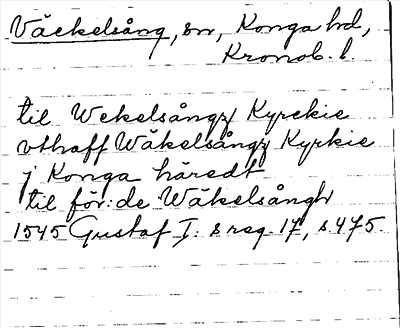 Väckelsång, sn, Konga hd,
Kronob. l.
til Wekelsångz Kyrckie
vthaff Wåkelsångz Kyrkie
j Konga häredt
til för:de Wåkelsångh
1545 Gustaf I: s reg. 17, s. 475.